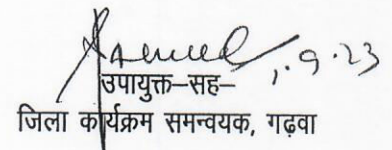 1.9.23
उपायुक्त–सह–
जिला कार्यक्रम समन्वयक, गढ़वा